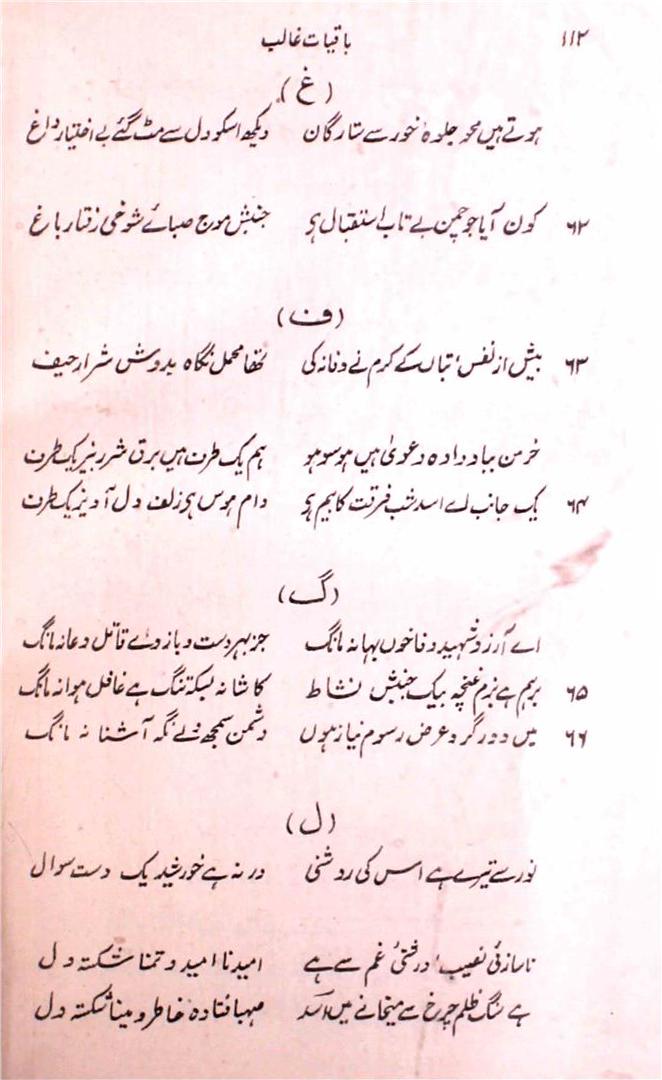 ۱۱۲ باقیات غالب
(غ)
ہوتے ہیں محو جلوہ خور سے ستارگان دیکھ اسکو دل سے مٹ گئے بے اختیار داغ
۶۲ کون آیا جو چمن بے تاب استقبال ہی جنبش موج صبا ہے شوخی رفتار باغ
(ف)
۶۳ بیش از نفس، بتاں کے کرم نے وفا نہ کی تھا محمل نگاہ بدوش شرار حیف
خرمن بباد دادہ دعویٰ ہیں ہو سو ہو ہم یک طرف ہیں برق شرر بیز یک طرف
۶۴ یک جانب اے اسد شب فرقت کا بیم ہی دام ہوس ہی زلف دل آویز یک طرف
(گ)
اے آرزو شہید وفا خوں بہا نہ مانگ جز بہر دست و بازوے قاتل دعا نہ مانگ
۶۵ برہم ہے بزم غنچہ بیک جنبش نشاط کاشانہ بسکہ تنگ ہے غافل ہوا نہ مانگ
۶۶ میں دور گرد عرض رسوم نیاز ہوں دشمن سمجھ ولے نگہ آشنا نہ مانگ
(ل)
نور سے تیرے ہے اس کی روشنی ورنہ ہے خورشید یک دست سوال
ناسازئ نصیب، درشتئ غم سے ہے امید ناامید و تمنا شکستہ دل
ہے سنگ ظلم چرخ سے میخانے میں اسد صہبا فتادہ خاطر و مینا شکستہ دل